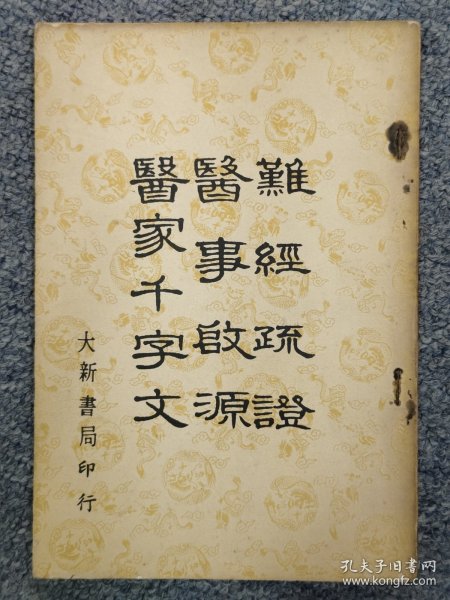 難經疏證
醫事啟源
醫家千字文
大新書局印行
孔夫子旧书网
www.kongfz.com